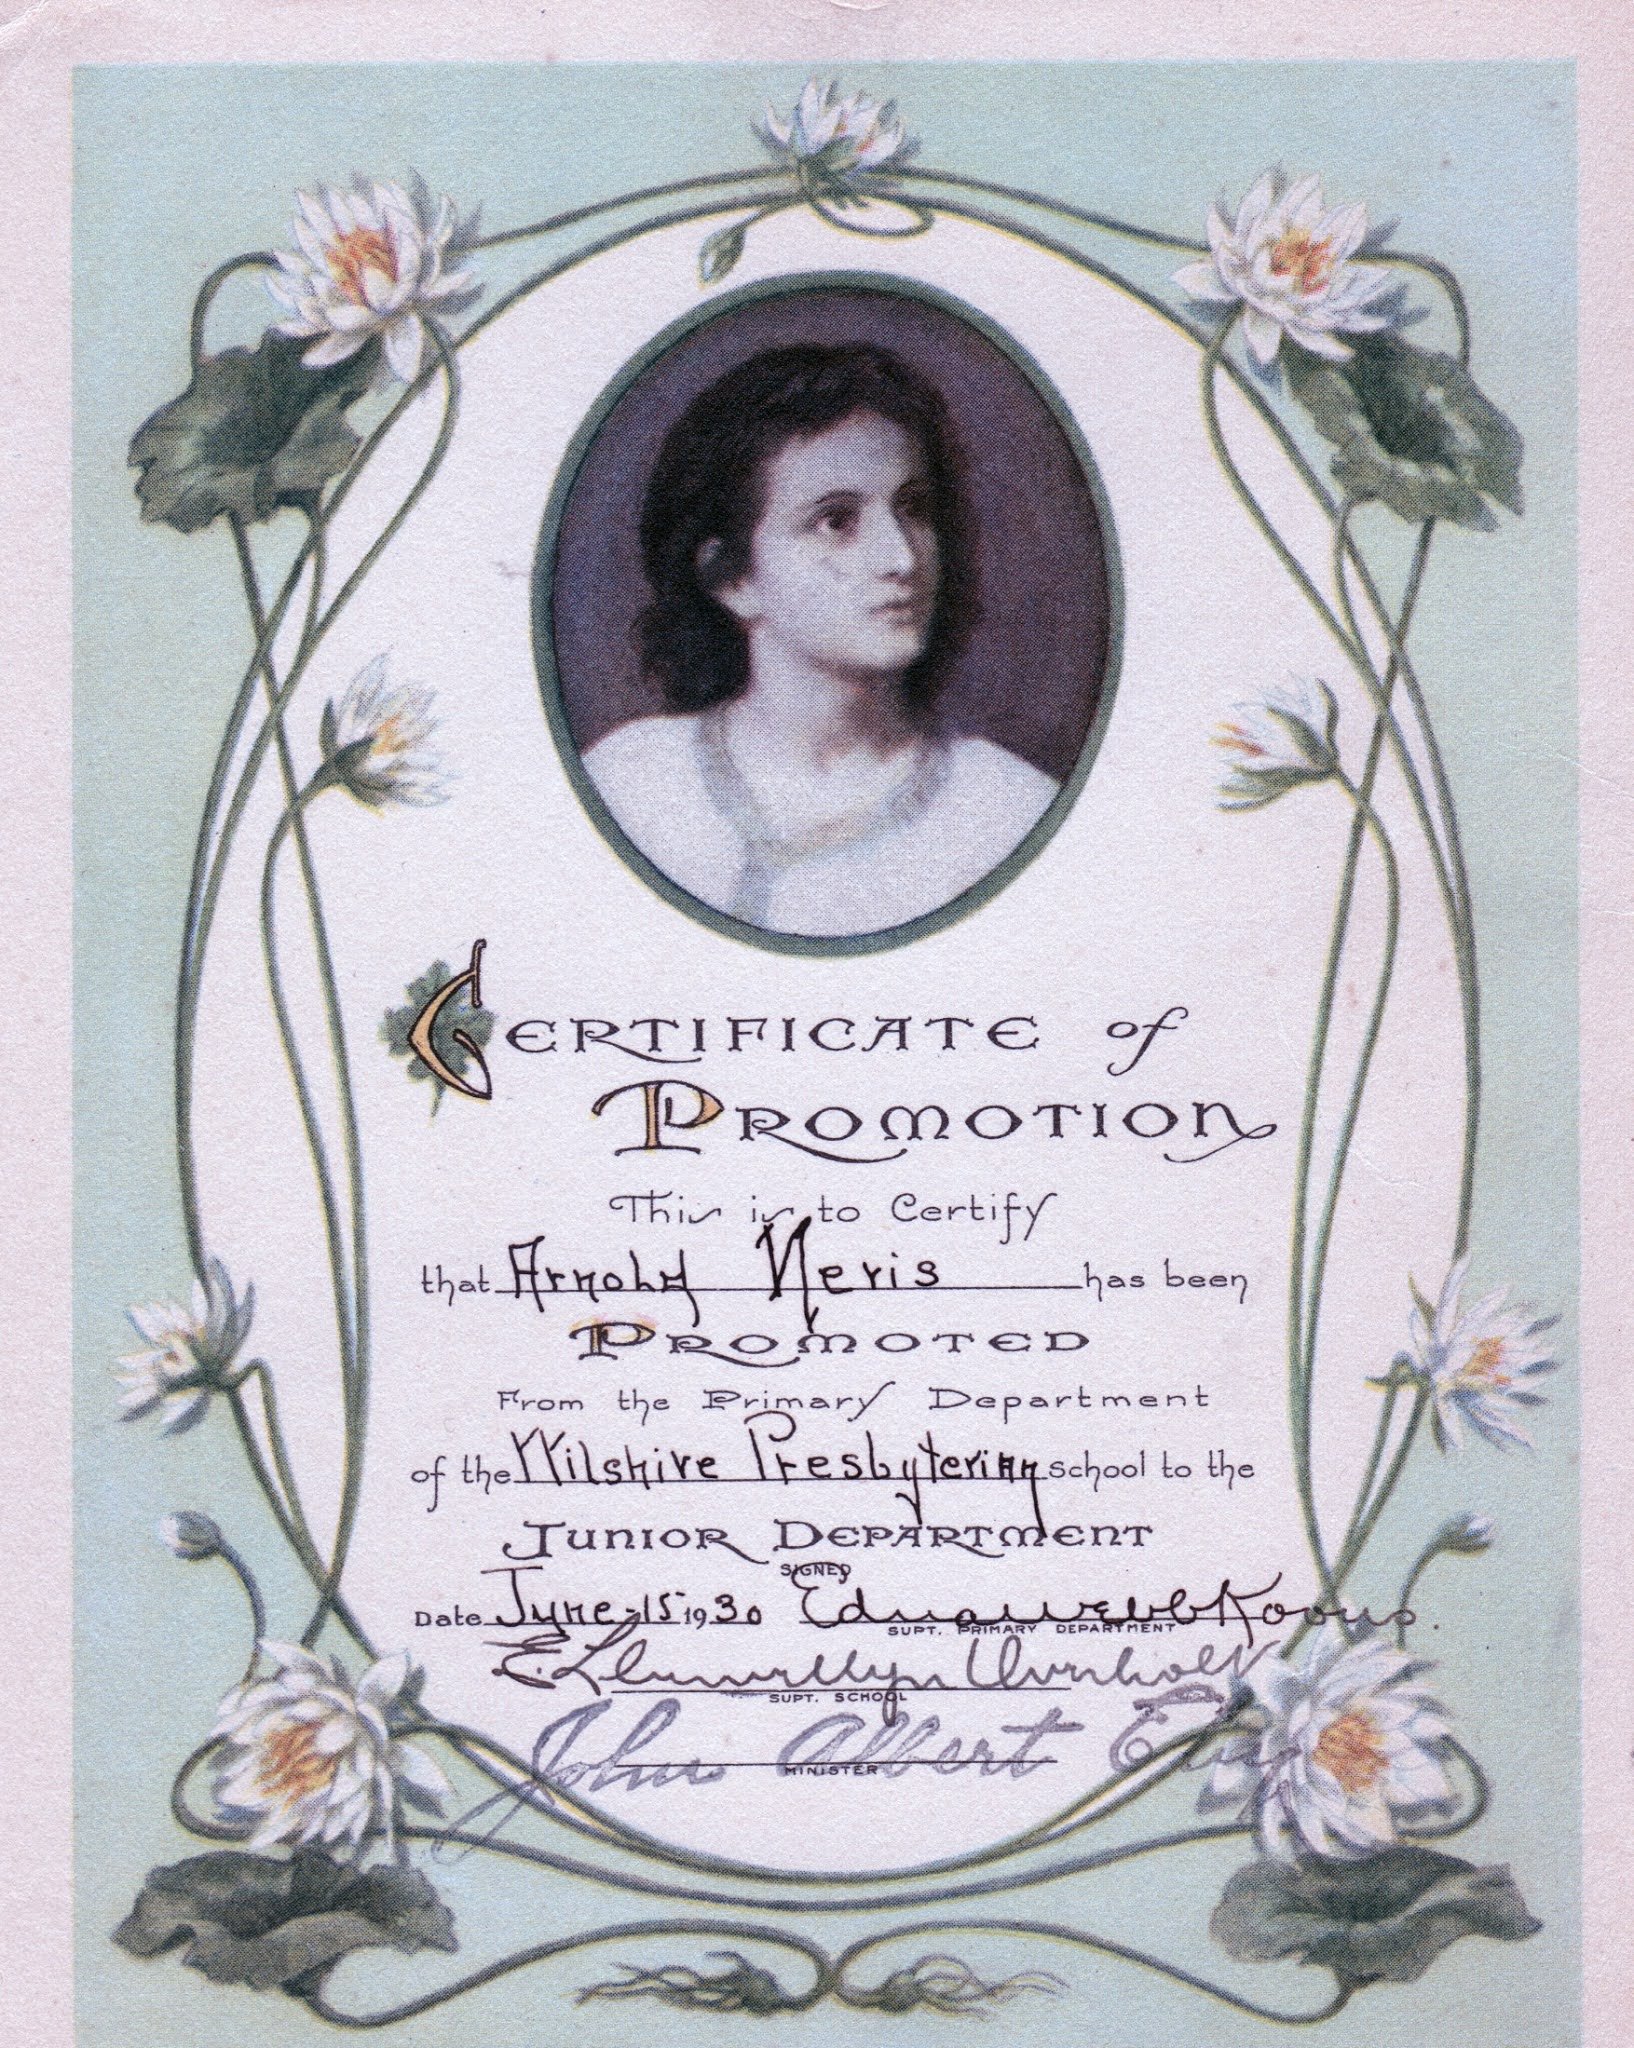 Certificate of
Promotion
This is to Certify
that Arnold Neris has been
Promoted
From the Primary Department
of the Wilshire Presbyterian school to the
Junior Department
SIGNED
Date June-15-1930 Edna Webb Koons.
SUPT. PRIMARY DEPARTMENT
E. Llewellyn
SUPT. SCHOOL
John Albert
MINISTER